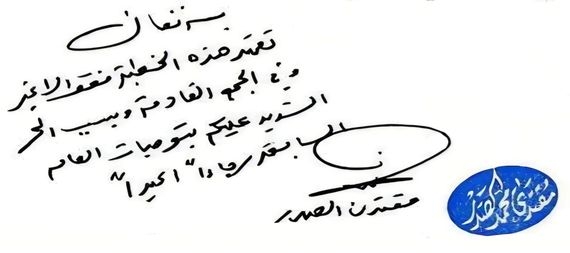 بسمه تعالى
تعتمد هذه الخطبة فقط لا غير
وفي الجمع القادمة وبسبب الحر
الشديد عليكم بتوصيات العام
السابق رجاءاً "أكيداً"
مقتدى الصدر
مقتدى محمد الصدر